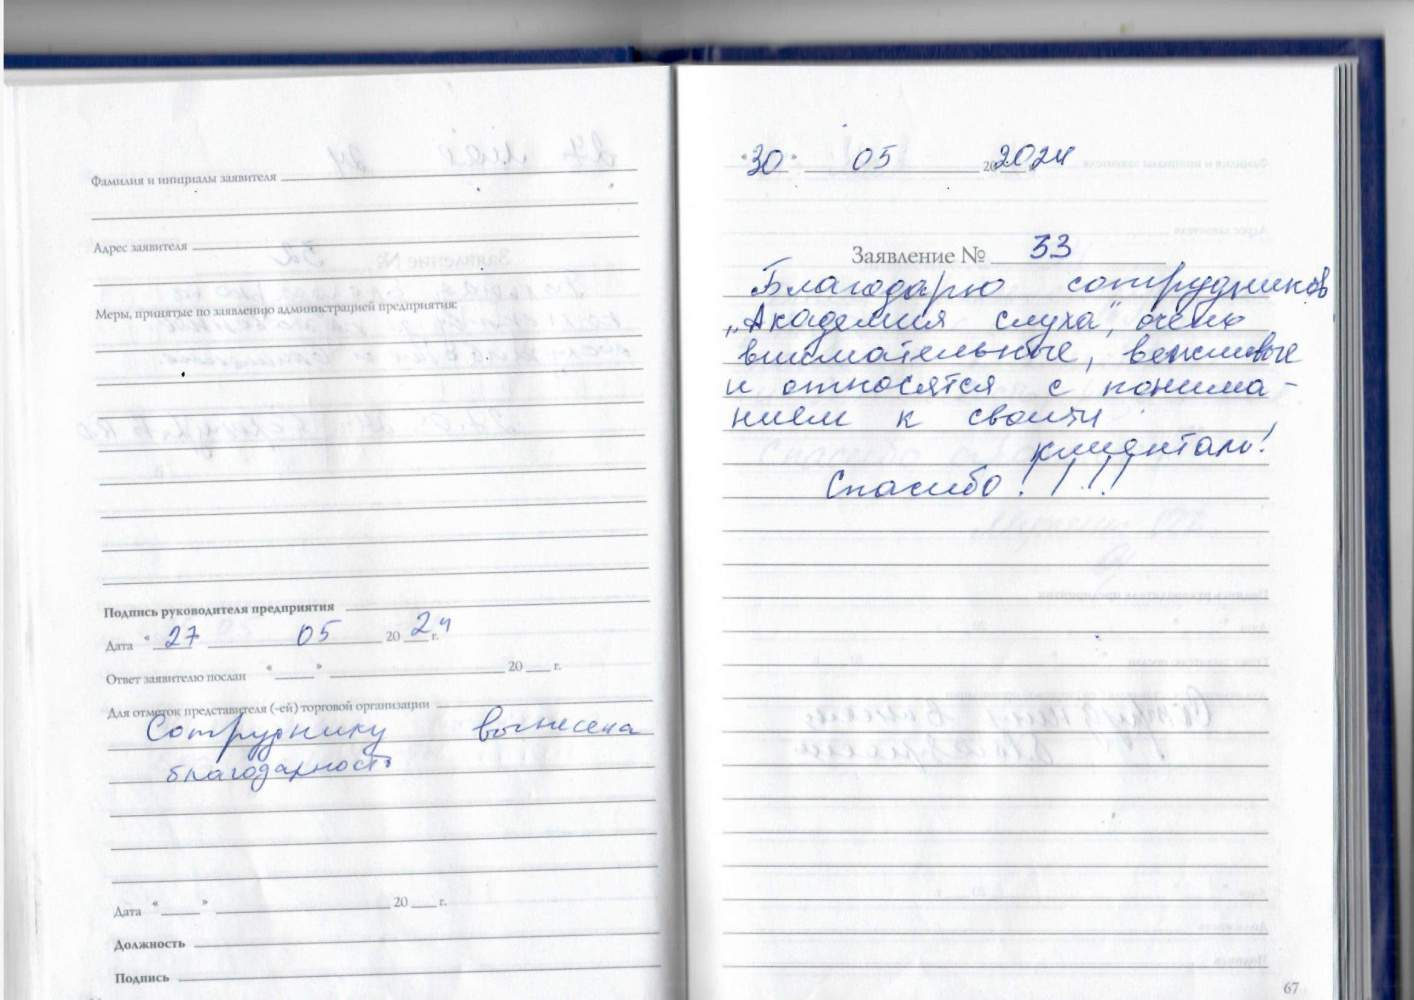 Фамилия и инициалы заявителя
Адрес заявителя
Меры, принятые по заявлению администрацией предприятия:
Подпись руководителя предприятия
Дата " 27 05 20 24 г.
Ответ заявителю послан " " 20 г.
Для отметок представителя (-ей) торговой организации
Сотруднику вынесена
благодарность
Дата " " 20 г.
Должность
Подпись
"30" 05 20 2024
Заявление № 33
Благодарю сотрудников
„Академия слуха", очень
внимательные, вежливые
и относятся с понима-
нием к своим
клиентам!
Спасибо! ! ! !
67